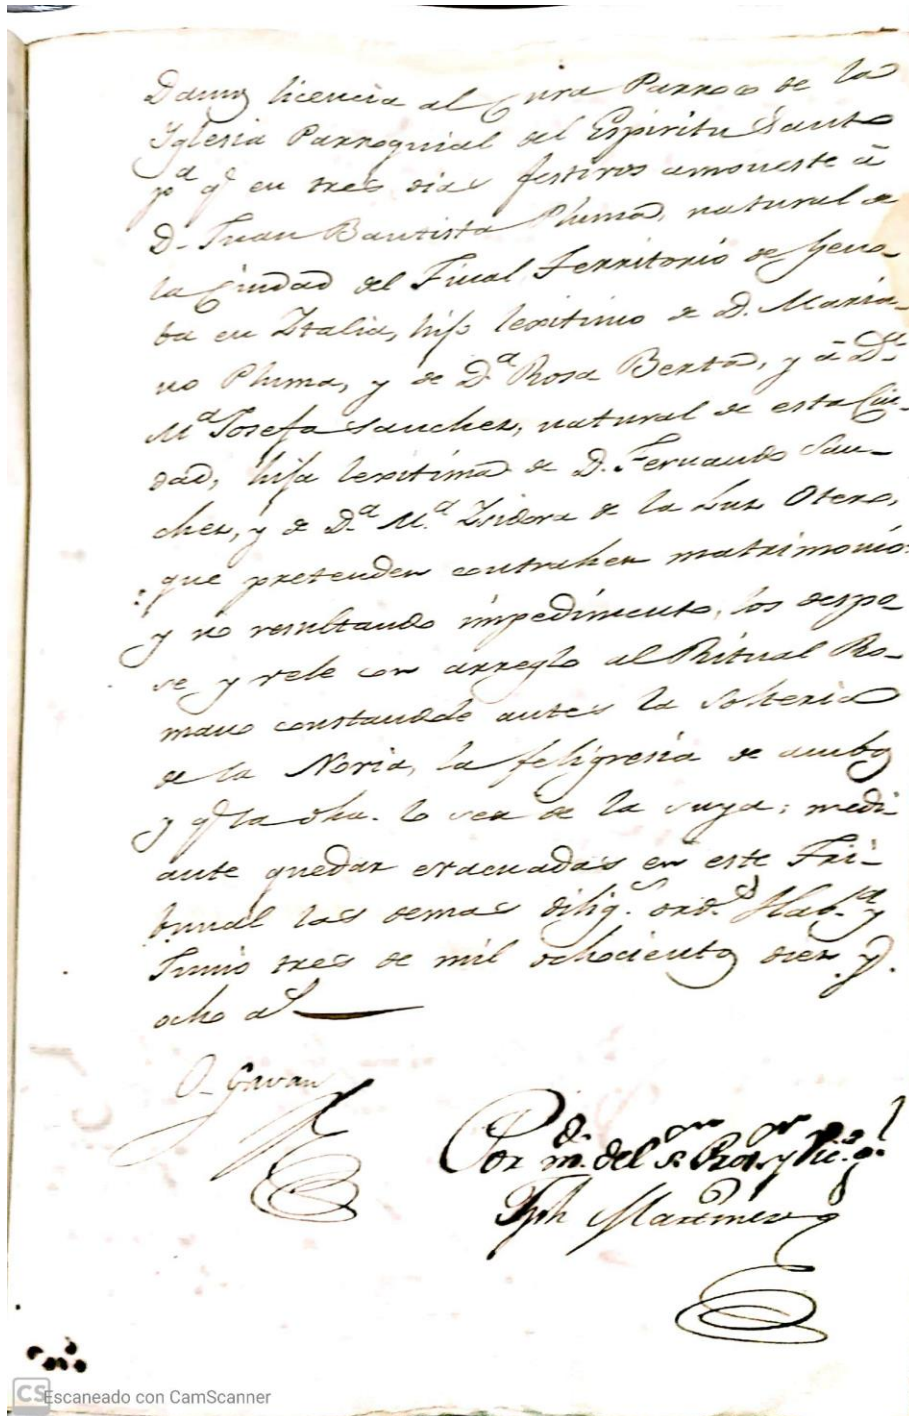 Damos licencia al Cura Parroco de la
Yglesia Parroquial del Espiritu Santo
pa. q̃ en tres dias festivos amoneste á
D. Juan Bautista Pluma, natural de
la Ciudad del Final Territorio de Geno-
ba en Ytalia, hijo lexitimo de D. Maria-
no Pluma, y de Da. Rosa Berta, y á Da.
Ma. Josefa Sanchez, natural de esta Ciu-
dad, hija lexitima de D. Fernando San-
chez, y de Da. Ma. Ysidora de la Luz Otero,
que pretenden contraher matrimonio:
y no resultando impedimento, los despo-
se y vele con arreglo al Ritual Ro-
mano constandole antes la solteria
de la Novia, la feligresia de ambos
y q̃ la dha. lo sea de la suya; medi-
ante quedar evacuadas en este Tri-
bunal las demas dilig.s ord.s Hab.a y
Junio tres de mil ochocientos diez y
ocho a.s
O-Gavan
Por m.do del S.or Pror. y Vic.o g.l
Jph Martinez
Escaneado con CamScanner